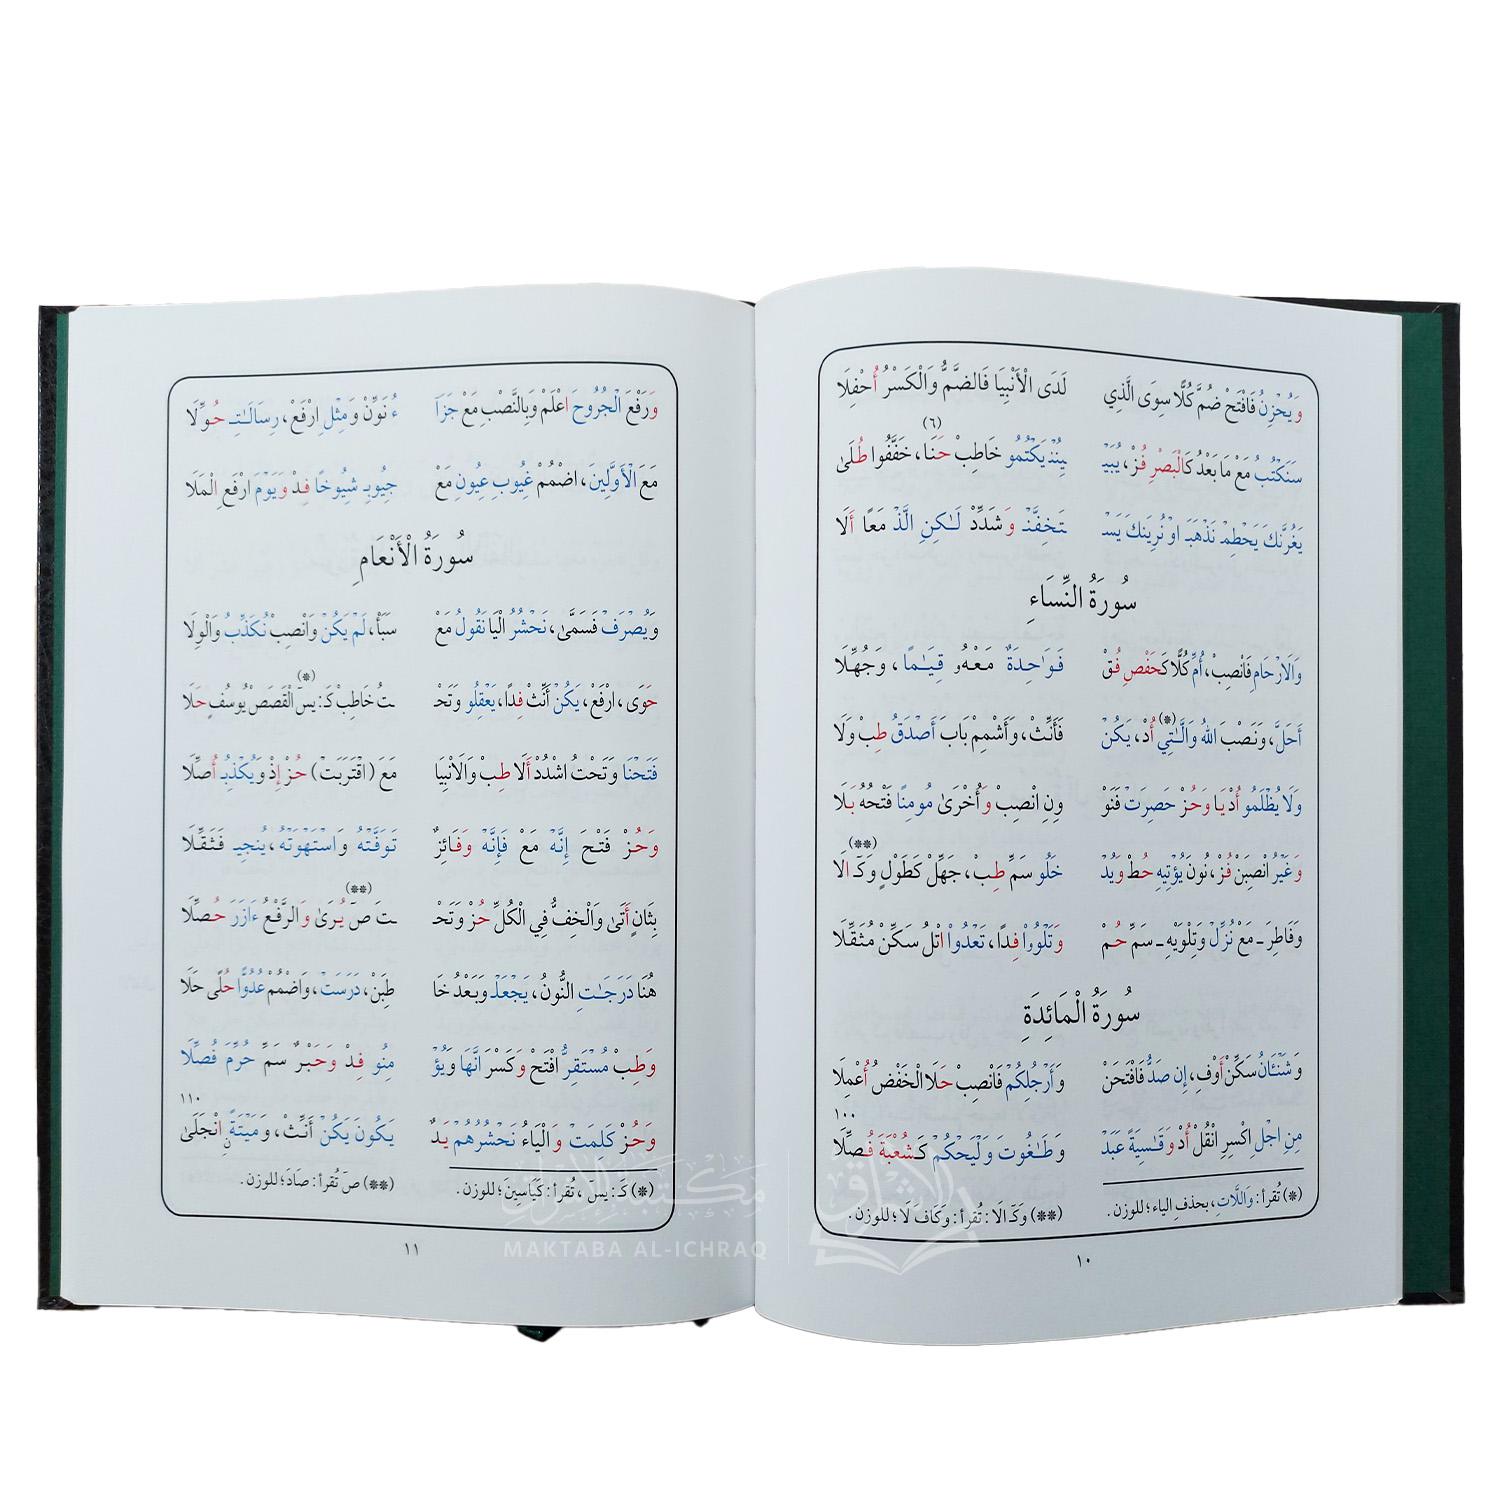 وَيُحْزِنُ فَافْتَحْ ضُمَّ كُلًّا سِوَى الَّذِي لَدَى الْأَنْبِيَا فَالضَّمُّ وَالْكَسْرُ أُحْفِلَا
(٦)
سَنَكْتُبُ مَعْ مَا بَعْدُ كَالْبَصْرِ فُزْ، يُبَيْـ يِنُنْذِ يَكْتُمُو خَاطِبْ حَنَا، خَفَّفُوا طُلَى
يَغُرَّنكَ يَحْطِمْ نَذْهَبَـ اوْ نُرِيَنكَ يَسْـ تَخِفَّنْـ وَشَدِّدْ لَـٰكِنِ الَّذْ مَعًا أَلَا
سُورَةُ النِّسَاءِ
وَالَارْحَامِ فَانْصِبْ، أُمِّ كُلًّا كَحَفْصِ فُقْ فَوَاحِدَةٌ مَعْهُو قِيَـٰمًا، وَجُهِّلَا
(*)
أَحَلَّ، وَنَصْبَ اللهُ وَالَّـٰتِي أُدْ، يَكُنْ فَأَنِّثْ، وَأَشْمِمْ بَابَ أَصْدَقُ طِبْ وَلَا
وَلَا يُظْلَمُو أُدْ يَا وَحُزْ حَصِرَتْ فَنَوْ وِنِ انْصِبْ وَأُخْرَىٰ مُومِنًا فَتْحُهُ بَلَا
(**)
وَغَيْرُ انْصِبَنْ فُزْ، نُونَ يُؤْتِيهِ حُطْ وَيُدْ خَلُو سَمِّ طِبْ، جَهِّلْ كَطَوْلٍ وَكَـ الَا
وَفَاطِرَ ـ مَعْ نُزِّلْ وَتِلْوَيْهِ ـ سَمِّ حُمْ وَتَلْوُواْ فِدًا، تَعْدُواْ اتْلُ سَكِّنْ مُثَقِّلَا
سُورَةُ الْمَائِدَةِ
وَشَنْئَانُ سَكِّنْ أَوْفِ، إِن صَدُّ فَافْتَحَنْ وَأَرْجُلِكُمْ فَانْصِبْ حَلَا الْخَفْضُ أُعْمِلَا
١٠٠
مِنِ اجْلِ اكْسِرِ انْقُلْ أُدْ وَقَـٰسِيَةً عَبَدْ وَطَـٰغُوتَ وَلْيَحْكُمْ كَشُعْبَةَ فُصِّلَا
(*) تُقرأ: وَاللَّاتِ، بحذف الياء؛ للوزن. (**) وَكَـ الَا: تُقرأ: وَكَاف لَا؛ للوزن.
١٠
وَرَفْعَ الْجُرُوحَ اعْلَمْ وَبِالنَّصْبِ مَعْ جَزَا ءُ نَوِّنْ وَمِثْلِ ارْفَعْ، رِسَالَـٰتِـ حُوِّلَا
مَعَ الْأَوَّلِينَ، اضْمُمْ غُيُوبِ عِيُونِ مَعْ جِيُوبِـ شِيُوخًا فِدْ وَيَوْمَ ارْفَعِ الْمَلَا
سُورَةُ الْأَنْعَامِ
وَيُصْرَفْ فَسَمَّىٰ، نَحْشُرُ الْيَا نَقُولُ مَعْ سَبَأْ، لَمْ يَكُنْ وَانْصِبْ نُكَذِّبُ وَالْوِلَا
(*)
حَوَى، ارْفَعْ، يَكُنْ أَنِّثْ فِدًا، يَعْقِلُو وَتَحْـ ـتُ خَاطِبْ كَـ: يسٓ الْقَصَصْ يُوسُفٍ حَلَا
فَتَحْنَا وَتَحْتُ اشْدُدْ أَلَا طِبْ وَالَانْبِيَا مَعَ (اقْتَرَبَتْ) حُزْ إِذْ وَيُكْذِبُـ أُصِّلَا
وَحُزْ فَتْحَ إِنَّهْ مَعْ فَإِنَّهْ وَفَائِزٌ تَوَفَّتْهُ وَاسْتَهْوَتْهُ، يُنجِيـ فَثَقِّلَا
(**)
بِثَانٍ أَتَىٰ وَالْخِفُّ فِي الْكُلِّ حُزْ وَتَحْـ ـتَ صٓ يُرَىٰ وَالرَّفْعُ ءَازَرَ حُصِّلَا
هُنَا دَرَجَـٰتِ النُّونُ، يَجْعَلْـ وَبَعْدُ خَا طِبَنْ، دَرَسَتْ، وَاضْمُمْ عُدُوًّا حُلًى حَلَا
وَطِبْ مُسْتَقِرٌّ افْتَحْ وَكَسْرَ انَّهَا وَيُؤْ مِنُو فِدْ وَحَبْرٌ سَمِّ حُرِّمَ فُصِّلَا
١١٠
وَحُزْ كَلِمَتْ وَالْيَاءُ نَحْشُرُهُمْ يَدٌ يَكُونَ يَكُنْ أَنِّثْ، وَمَيْتَةٌ انْجَلَىٰ
(*) كَـ: يسٓ، تُقرأ: كَيَاسِينَ؛ للوزن. (**) صٓ تُقرأ: صَادَ؛ للوزن.
١١
مكتبة الإشراق
MAKTABA AL-ICHRAQ
الإشراق